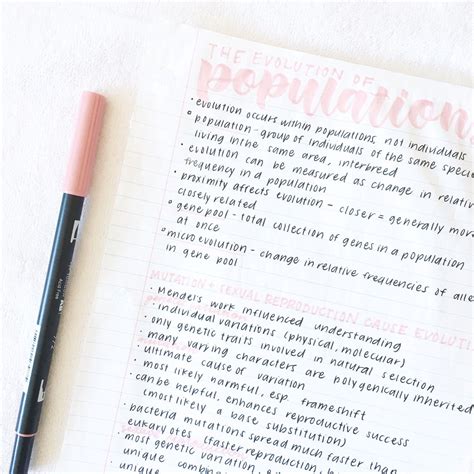 THE EVOLUTION OF
population
• evolution occurs within populations, not individuals
° population - group of individuals of the same species
living in the same area, interbreed
• evolution can be measured as change in relative
frequency in a population
• proximity affects evolution - closer = generally more
closely related
° gene pool - total collection of genes in a population
at once
° micro evolution - change in relative frequencies of alle
in gene pool
MUTATION + SEXUAL REPRODUCTION CAUSE EVOLUTI
• Mendel's work influenced understanding
• individual variations (physical, molecular)
• only genetic traits involved in natural selection
• many varying characters are polygenically inherited
• ultimate cause of variation
• most likely harmful, esp. frameshift
• can be helpful, enhances reproductive success
(most likely a base substitution)
• bacteria mutations spread much faster than
eukaryotes (faster reproduction,
• most genetic variation,
unique combin